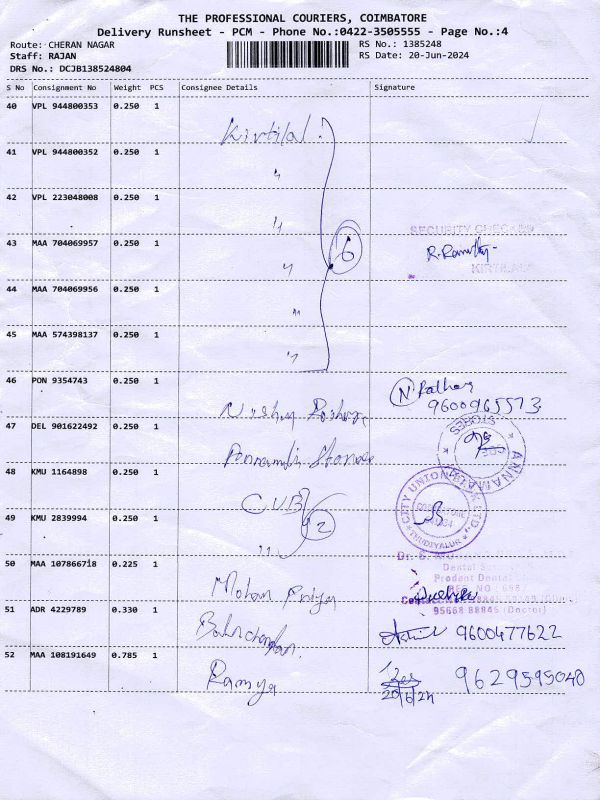 THE PROFESSIONAL COURIERS, COIMBATORE
Delivery Runsheet - PCM - Phone No.:0422-3505555 - Page No.:4
Route: CHERAN NAGAR RS No.: 1385248
Staff: RAJAN RS Date: 20-Jun-2024
DRS No.: DCJB138524804
S No Consignment No Weight PCS Consignee Details Signature
40 VPL 944800353 0.250 1 Kirtilal
41 VPL 944800352 0.250 1 "
42 VPL 223048008 0.250 1 "
SECURITY CHECKED
43 MAA 704069957 0.250 1 " 6
KIRTILAL
44 MAA 704069956 0.250 1 "
45 MAA 574398137 0.250 1 "
46 PON 9354743 0.250 1
9600965573
47 DEL 901622492 0.250 1
STORES
ANNAMALAI
48 KMU 1164898 0.250 1 CUB 2
CITY UNION BANK LTD.
THUDIYALUR
49 KMU 2839994 0.250 1 "
50 MAA 107866718 0.225 1 Mohan Priya
Prodent Dental
95668 88845 (Doctor)
51 ADR 4229789 0.330 1 9600477622
52 MAA 108191649 0.785 1 Ramya 9629595040
20/6/24